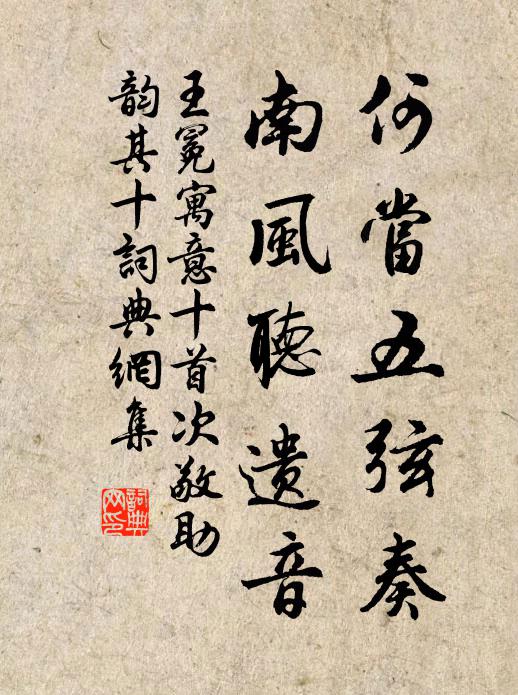 何當五弦奏
南風聽遺音
王冕寓意十首次敬助
韵其十詞典網集
詞典网印